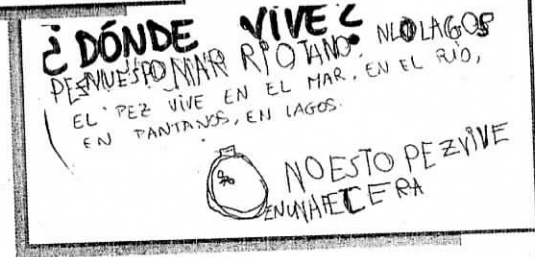 ¿DÓNDE VIVE?
PEZNUESPO MAR RIO TANO NLOLAGOS
EL PEZ VIVE EN EL MAR, EN EL RÍO,
EN PANTANOS, EN LAGOS.
NOESTO PEZVIVE
ENUNAPECERA